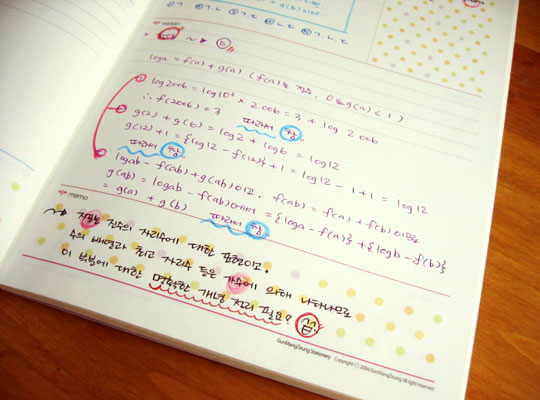 memo
~ ▶ ⓑ
loga = f(a) + g(a) (f(a)는 정수, 0 ≤ g(a) < 1)
log2006 = log10³ × 2.006 = 3 + log 2.006
∴ f(2006) = 3 따라서 참
g(2) + g(6) = log2 + log6 = log12
g(12)+1 = {log12 - f(12)} +1 = log12 - 1 +1 = log12
따라서 참
logab = f(ab) + g(ab)이고, f(ab) = f(a) + f(b)이므로
g(ab) = logab - f(ab)에서 = {loga - f(a)} + {logb - f(b)}
= g(a) + g(b) 따라서 참
memo
~▶ 지표는 진수의 자리수에 대한 표현이고,
수의 배열과 최고 자리수 등은 가수에 의해 나타나므로
이 부분에 대한 명확한 개념 정리 필요!
GunMangZeung Stationery Copyright (C) 2004 GunMangZeung All right reserved